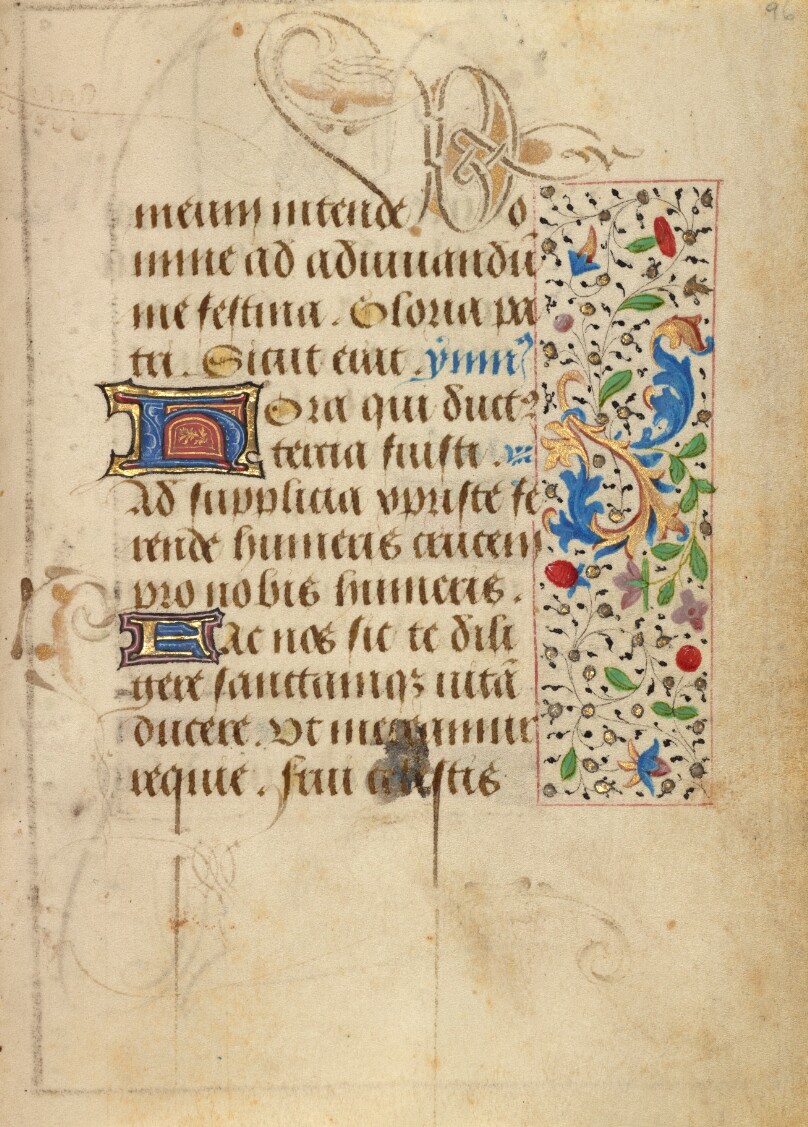 96
meum intende Do
mine ad adiuuandū
me festina . Gloria pa
tri . Sicut erat . ymn9
HOra qui duct9
tercia fuisti .
Ad supplicia xpriste fe
rende humeris crucem
pro nobis humeris .
FAc nos sic te dili
gere sanctamqz uitā
ducere . Vt mereamur
requie . frui celestis